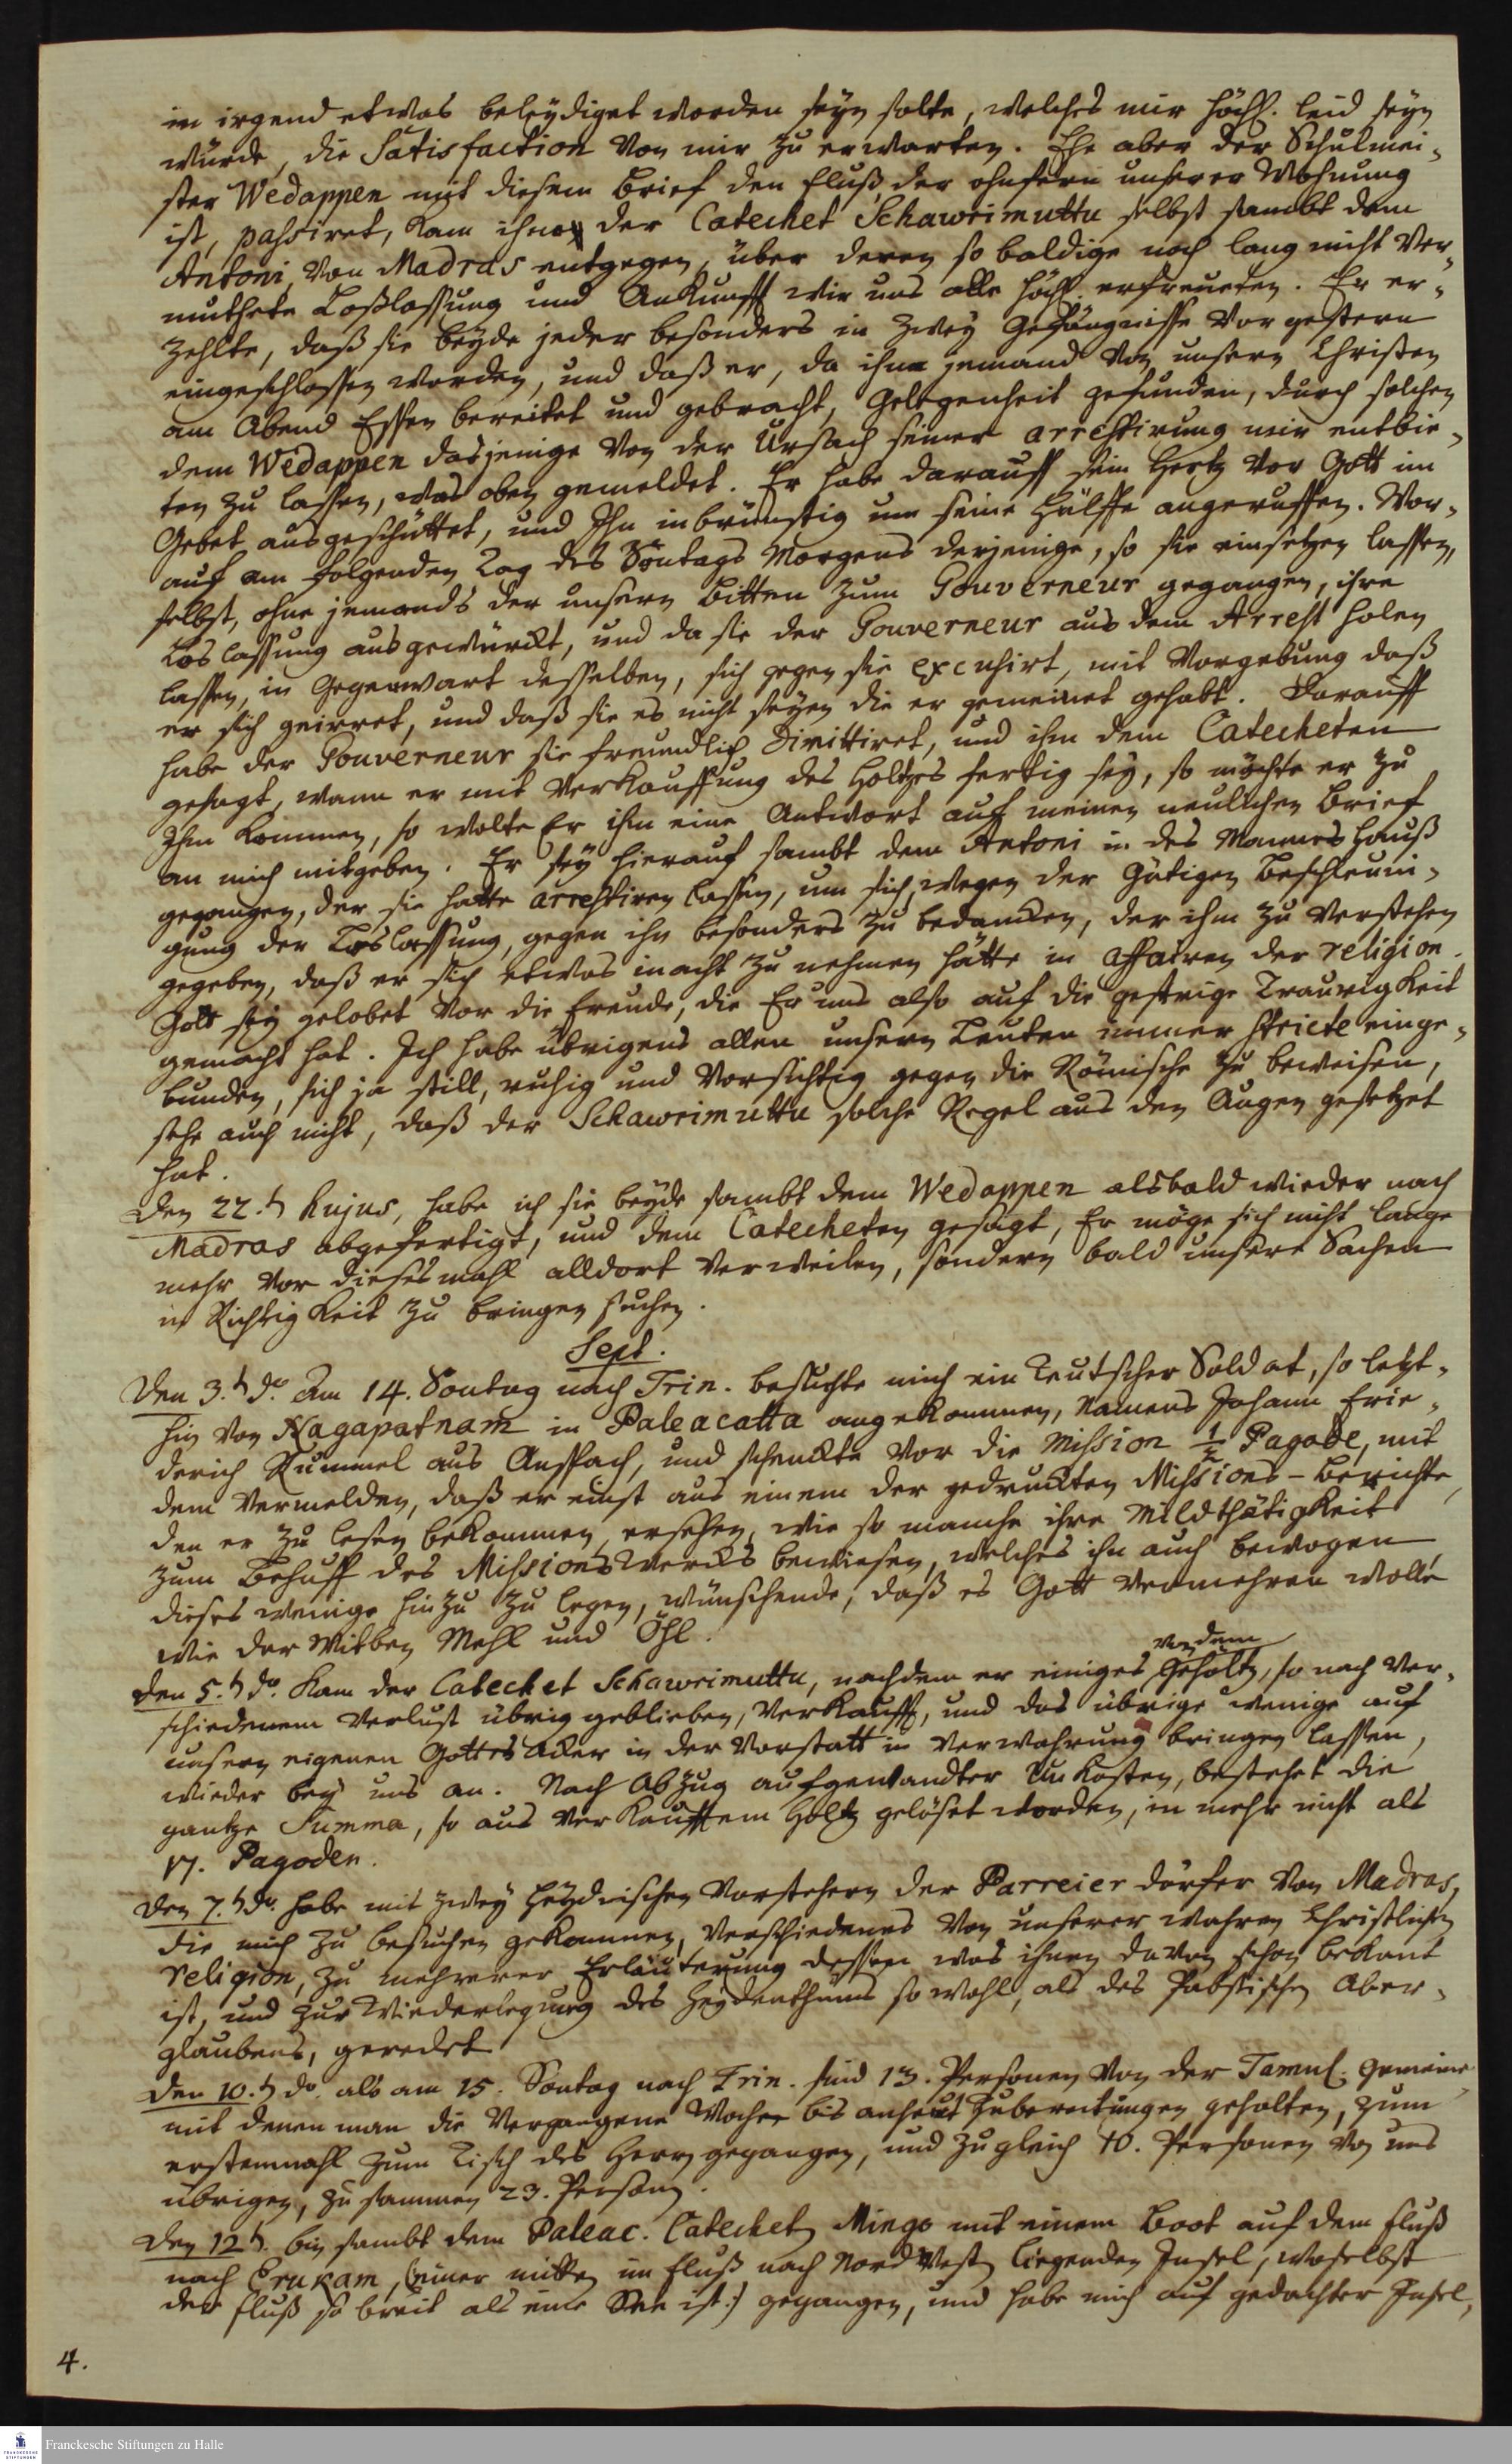 in irgend etwas beleydiget worden seyn solte, welches mir höchl. leid seyn
würde, die Satisfaction von mir zu erwarten. Ehe aber der Schulmei-
ster Wedappen mit diesem Brief den Fluß, der ohnfern unserer Wohnung
ist, passiret, kam ihm der Catechet Schawrimuttu selbst sambt dem
Antoni von Madras entgegen, über deren so baldige noch lang nicht ver-
muthete Loßlassung und Ankunfft wir uns alle höchl. erfreueten. Er er-
zehlte, daß sie beyde jeder besonders in zwey Gefängnisse vorgestern
eingeschlossen worden, und daß er, da ihm jemand von unsern Christen
am Abend Essen bereitet und gebracht, Gelegenheit gefunden, durch solchen
dem Wedappen dasjenige von der Ursach seiner arrestirung mir entbie-
ten zu lassen, was oben gemeldet. Er habe darauff sein Hertz vor Gott im
Gebet ausgeschüttet, und Ihn inbrünstig um seine Hülffe angeruffen. Wor-
auf am folgenden Tag des Sontags Morgens derjenige, so sie einsetzen lassen,
selbst, ohne jemands der unsern Bitten zum Gouverneur gegangen, ihre
Loslassung ausgewürckt, und da sie der Gouverneur aus dem Arrest holen
lassen, in Gegenwart desselben, sich gegen sie excusirt, mit Vorgebung daß
er sich geirret, und daß sie es nicht seyen die er gemeinet gehabt. Darauff
habe der Gouverneur sie freundlich dimittiret, und ihm dem Catecheten
gesagt, wann er mit Verkauffung des Holtzes fertig sey, so möchte er zu
Ihm kommen, so wolte Er ihm eine Antwort auf meinen neulichen Brief
an mich mitgeben. Er sey hierauf sambt dem Antoni in des Mannes Hauß
gegangen, der sie hatte arrestiren lassen, um sich, wegen der gütigen Beschleuni-
gung der Loslassung, gegen ihn besonders zu bedancken, der ihm zu verstehen
gegeben, daß er sich etwas inacht zu nehmen hätte in affairen der religion.
Gott sey gelobet vor die Freude, die Er uns also auf die gestrige Traurigkeit
gemacht hat. Ich habe übrigens allen unsern Leuten immer stricte einge-
bunden, sich ja still, ruhig und vorsichtig gegen die Römische zu beweisen,
sehe auch nicht, daß der Schawrimuttu solche Regel aus den Augen gesetzet
hat.
Den 22.t hujus, habe ich sie beyde sambt dem Wedappen alsbald wieder nach
Madras abgefertigt, und dem Catecheten gesagt, Er möge sich nicht lange
mehr vor dieses mahl alldort verweilen, sondern bald unsere Sachen
in Richtigkeit zu bringen suchen.
Sept.
Den 3.t do. Am 14. Sontag nach Trin. besuchte mich ein Teutscher Soldat, so letzt-
hin von Nagapatnam in Paleacatta angekommen, Namens Johann Frie-
derich Rummel aus Anspach, und schenckte vor die Mission 1/2 Pagode, mit
dem Vermelden, daß er einst aus einem der gedruckten Missions-Berichte,
den er zu lesen bekommen, ersehen, wie so manche ihre Mildthätigkeit
zum Behuff des Missions Wercks bewiesen, welches ihn auch bewogen
dieses wenige hinzu zu legen, wünschende, daß es Gott vermehren wolle
wie der Witben Mehl und Öhl.
Den 5.t do. kam der Catechet Schawrimuttu, nachdem er einiges von dem Gehöltz, so nach ver-
schiedenem Verlust übrig geblieben, verkaufft, und das übrige wenige auf
unsern eigenen Gottes Acker in der Vorstatt in Verwahrung bringen lassen,
wieder bey uns an. Nach Abzug aufgewandter Unkosten, bestehet die
gantze Summa, so aus verkaufftem Holtz gelöset worden, in mehr nicht als
17. Pagoden.
Den 7.t do. habe mit zwey heydnischen Vorstehern der Parreier dörfer von Madras,
die mich zu besuchen gekommen, verschiedenes von unserer wahren Christlichen
religion, zu mehrerer Erläuterung dessen was ihnen davon schon bekant
ist, und zur Wiederlegung des Heydenthums so wohl, als des Pabstischen Aber-
glaubens, geredet.
Den 10.t do. als am 15. Sontag nach Trin. sind 13. Personen von der Tamul. Gemeine
mit denen man die vergangene Woche bis anheut Zubereitungen gehalten, zum
erstenmahl zum Tisch des Herrn gegangen, und zugleich 10. Personen von uns
übrigen, zusammen 23. Person.
Den 12t. bin sambt dem Paleac. Catechet Mingo mit einem Boot auf dem Fluß
nach Erukam, (einer mitten im Fluß nach Nord West liegenden Insel, woselbst
der Fluß so breit als eine See ist:) gegangen, und habe mich auf gedachter Insel,
4.
Franckesche Stiftungen zu Halle